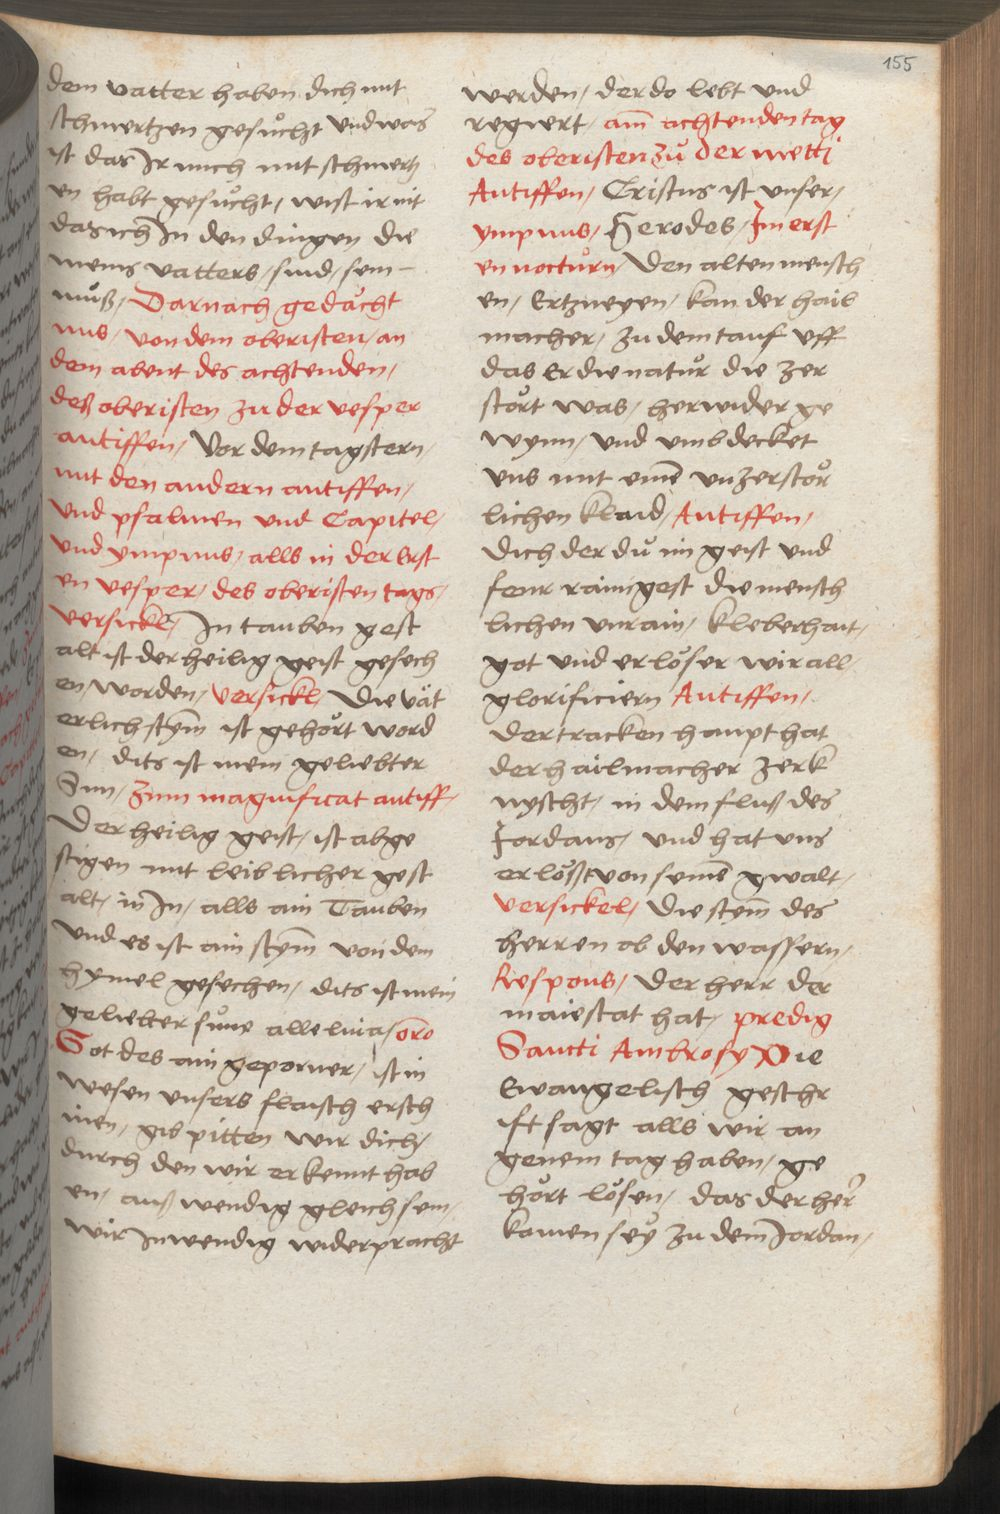 155
dem vatter haben dich mit
schmertzen gesůcht vnd was
ist das Ir mich mit schmertz
en habt gesůcht / wist ir nit
das ich In den dingen die
meins vatters / sind / sein –
můß / Darnach gedăcht
nus / von dem oberisten / an
dem abent des achtenden /
deß oberisten zu der vesper
antiffen / Vor dem tagstern /
mit den andern antiffen /
vnd psalmen vnd Capitel /
vnd ympnus / alls in der Erst
en vesper / des oberisten tags /
versickl / In tauben gest
alt ist der heilig geist gesech
en / worden / versickl / Die vät
erlich stym̄ ist gehört word
en / dits ist mein geliebter
Sun / Zum magnificat antiff /
Der heilig geist / ist abge
stigen mit leiblicher gest
alt / in In / alls ain Tauben
vnd es ist ain stym̄ von dem
hymel gesechen / dits ist mein
geliebter sůne alleluia / oro
Got des ain geporner / ist in
wesen vnsers flaisch ersch
inen / gib pitten wir dich /
durch den wir erkennt hab
en / auß wendig gleich sein /
wir Inwendig widerpracht
werden / der do lebt vnd
regiert / am̄ achtenden tag
des oberisten zů der metti
Antiffen / Cristus ist vnser /
ympnus / Herodes / Im erst
en nocturn / Den alten mensch
en / Ertzneyen / kan der hail
macher / zu dem tauf vff
das Er die natůr die zer
stört was / herwider ge
wynn / vnd vmbdecket
vns mit eine͞ vnzerstör
lichen klaid / Antiffen /
Dich der dů im geist vnd
feur rainigest die mensch
lichen vnrain / kleberhait /
got vnd erlöser wir all /
glorificiern Antiffen /
Der tracken haupt hat
der hailmacher zerk
nyscht / in dem fluß des
Jordans / vnd hat vns
erlößt von seine͞ gwalt /
versickel / Die stym̄ des
herren ob den wassern /
Respons / Der herr der
maiestat hat / predig
Sancti Ambrosy Die
Ewangelisch geschr
ift sagt alls wir an
genem tag haben / ge
hört lösen / das der her̕
kamen sey zu dem Jordan /